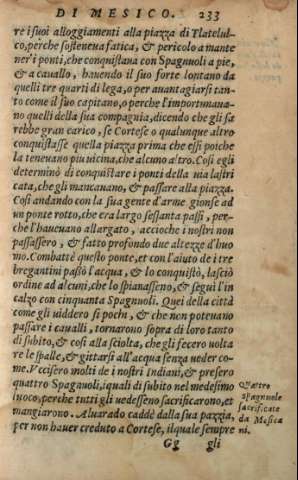 DI MESICO. 233
re i suoi alloggiamenti alla piazza di Tlatelul-
co, perche sosteneua fatica, & pericolo a mante
ner' i ponti, che conquistaua con Spagnuoli a pie,
& a cauallo, hauendo il suo forte lontano da
quelli tre quarti di lega, o per auantagiarsi tan-
to come il suo capitano, o perche l'importunaua-
no quelli della sua compagnia, dicendo che gli sa
rebbe gran carico, se Cortese o qualunque altro
conquistasse quella piazza prima che essi poiche
la teneuano piu uicina, che alcuno altro. Cosi egli
determinò di conquistare i ponti della uia lastri
cata, che gli mancauano, & passare alla piazza.
Cosi andando con la sua gente d'arme gionse ad
un ponte rotto, che era largo sessanta passi, per-
che l'haueuano allargato, accioche i nostri non
passassero, & fatto profondo due altezze d'huo
mo. Combatte questo ponte, et con l'aiuto de i tre
bregantini passò l'acqua, & lo conquistò, lasciò
ordine ad alcuni, che lo spianasseno, & seguì l'in
calzo con cinquanta Spagnuoli. Quei della città
come gli uiddero si pochi, & che non poteuano
passare i caualli, tornarono sopra di loro tanto
di subito, & cosi alla sciolta, che gli fecero uolta
re le spalle, & gittarsi all'acqua senza ueder co-
me. Vccisero molti de i nostri Indiani, & presero
quattro Spagnuoli, i quali di subito nel medesimo
luoco, perche tutti gli uedesseno sacrificarono, et
mangiarono. Aluarado caddè dalla sua pazzia,
per non hauer creduto a Cortese, il quale sempre
Quattro
Spagnuole
sacrificate
da Mesica
ni.
Gg gli